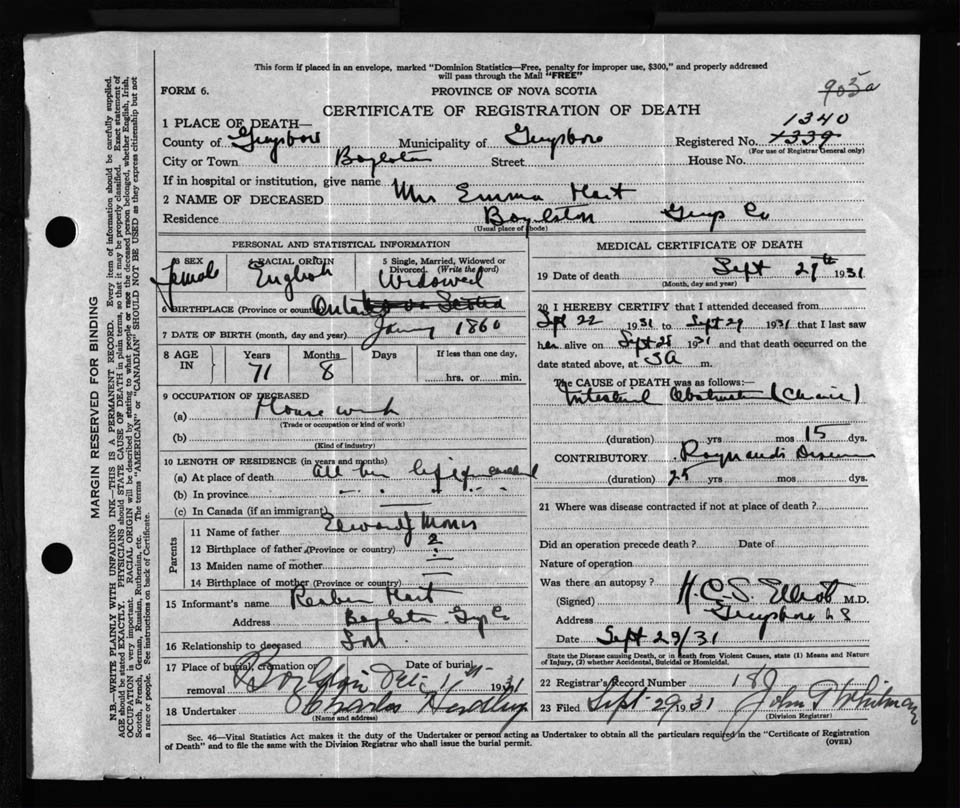 This form if placed in an envelope, marked "Dominion Statistics—Free, penalty for improper use, $300," and properly addressed
will pass through the Mail "FREE"
903a
FORM 6.
PROVINCE OF NOVA SCOTIA
CERTIFICATE OF REGISTRATION OF DEATH
1340
1 PLACE OF DEATH—
County of Guysboro Municipality of Guysboro Registered No. 1339
(For use of Registrar General only)
City or Town Boylston Street House No.
If in hospital or institution, give name
2 NAME OF DECEASED Mrs Emma Hart
Residence Boylston Guys Co
(Usual place of abode)
PERSONAL AND STATISTICAL INFORMATION
3 SEX Female
4 RACIAL ORIGIN English
5 Single, Married, Widowed or Divorced. (Write the word) Widowed
6 BIRTHPLACE (Province or country) Nova Scotia
7 DATE OF BIRTH (month, day and year) 1860
8 AGE IN Years 71 Months 8 Days If less than one day, hrs. or min.
9 OCCUPATION OF DECEASED
(a) House work
(Trade or occupation or kind of work)
(b)
(Kind of industry)
10 LENGTH OF RESIDENCE (in years and months)
(a) At place of death all her life
(b) In province
(c) In Canada (if an immigrant)
Parents
11 Name of father Edward J
12 Birthplace of father (Province or country) ?
13 Maiden name of mother
14 Birthplace of mother (Province or country)
15 Informant's name Reuben Hart
Address Boylston Guy Co
16 Relationship to deceased Son
17 Place of burial, cremation or removal Boylston Date of burial 1931
18 Undertaker Charles
(Name and address)
MEDICAL CERTIFICATE OF DEATH
19 Date of death Sept 29th 1931
(Month, day and year)
20 I HEREBY CERTIFY that I attended deceased from
Sept 22 1931 to Sept 29 1931 that I last saw
her alive on Sept 28 1931 and that death occurred on the
date stated above, at 3 A m.
The CAUSE OF DEATH was as follows:—
Intestinal Obstruction
(duration) yrs mos 15 dys.
CONTRIBUTORY Raynaud's Disease
(duration) 25 yrs mos dys.
21 Where was disease contracted if not at place of death?
Did an operation precede death? Date of
Nature of operation
Was there an autopsy?
(Signed) H. C. S. Elliott M.D.
Address Guysboro N S
Date Sept 29/31
State the Disease causing Death, or in death from Violent Causes, state (1) Means and Nature
of Injury, (2) whether Accidental, Suicidal or Homicidal.
22 Registrar's Record Number 18
23 Filed Sept 29 1931 John Whitman
(Division Registrar)
Sec. 46—Vital Statistics Act makes it the duty of the Undertaker or person acting as Undertaker to obtain all the particulars required in the "Certificate of Registration
of Death" and to file the same with the Division Registrar who shall issue the burial permit.
(OVER)
MARGIN RESERVED FOR BINDING
N.B.—WRITE PLAINLY WITH UNFADING INK—THIS IS A PERMANENT RECORD. Every item of information should be carefully supplied.
AGE should be stated EXACTLY. PHYSICIANS should STATE CAUSE OF DEATH in plain terms, so that it may be properly classified. Exact statement of
OCCUPATION is very important. RACIAL ORIGIN will be described by stating to what people or race the deceased person belonged, whether English, Irish,
Scotch, French, German, Russian, Ruthenian, etc. The terms "AMERICAN" or "CANADIAN" SHOULD NOT BE USED as they express citizenship but not
a race or people. See instructions on back of Certificate.